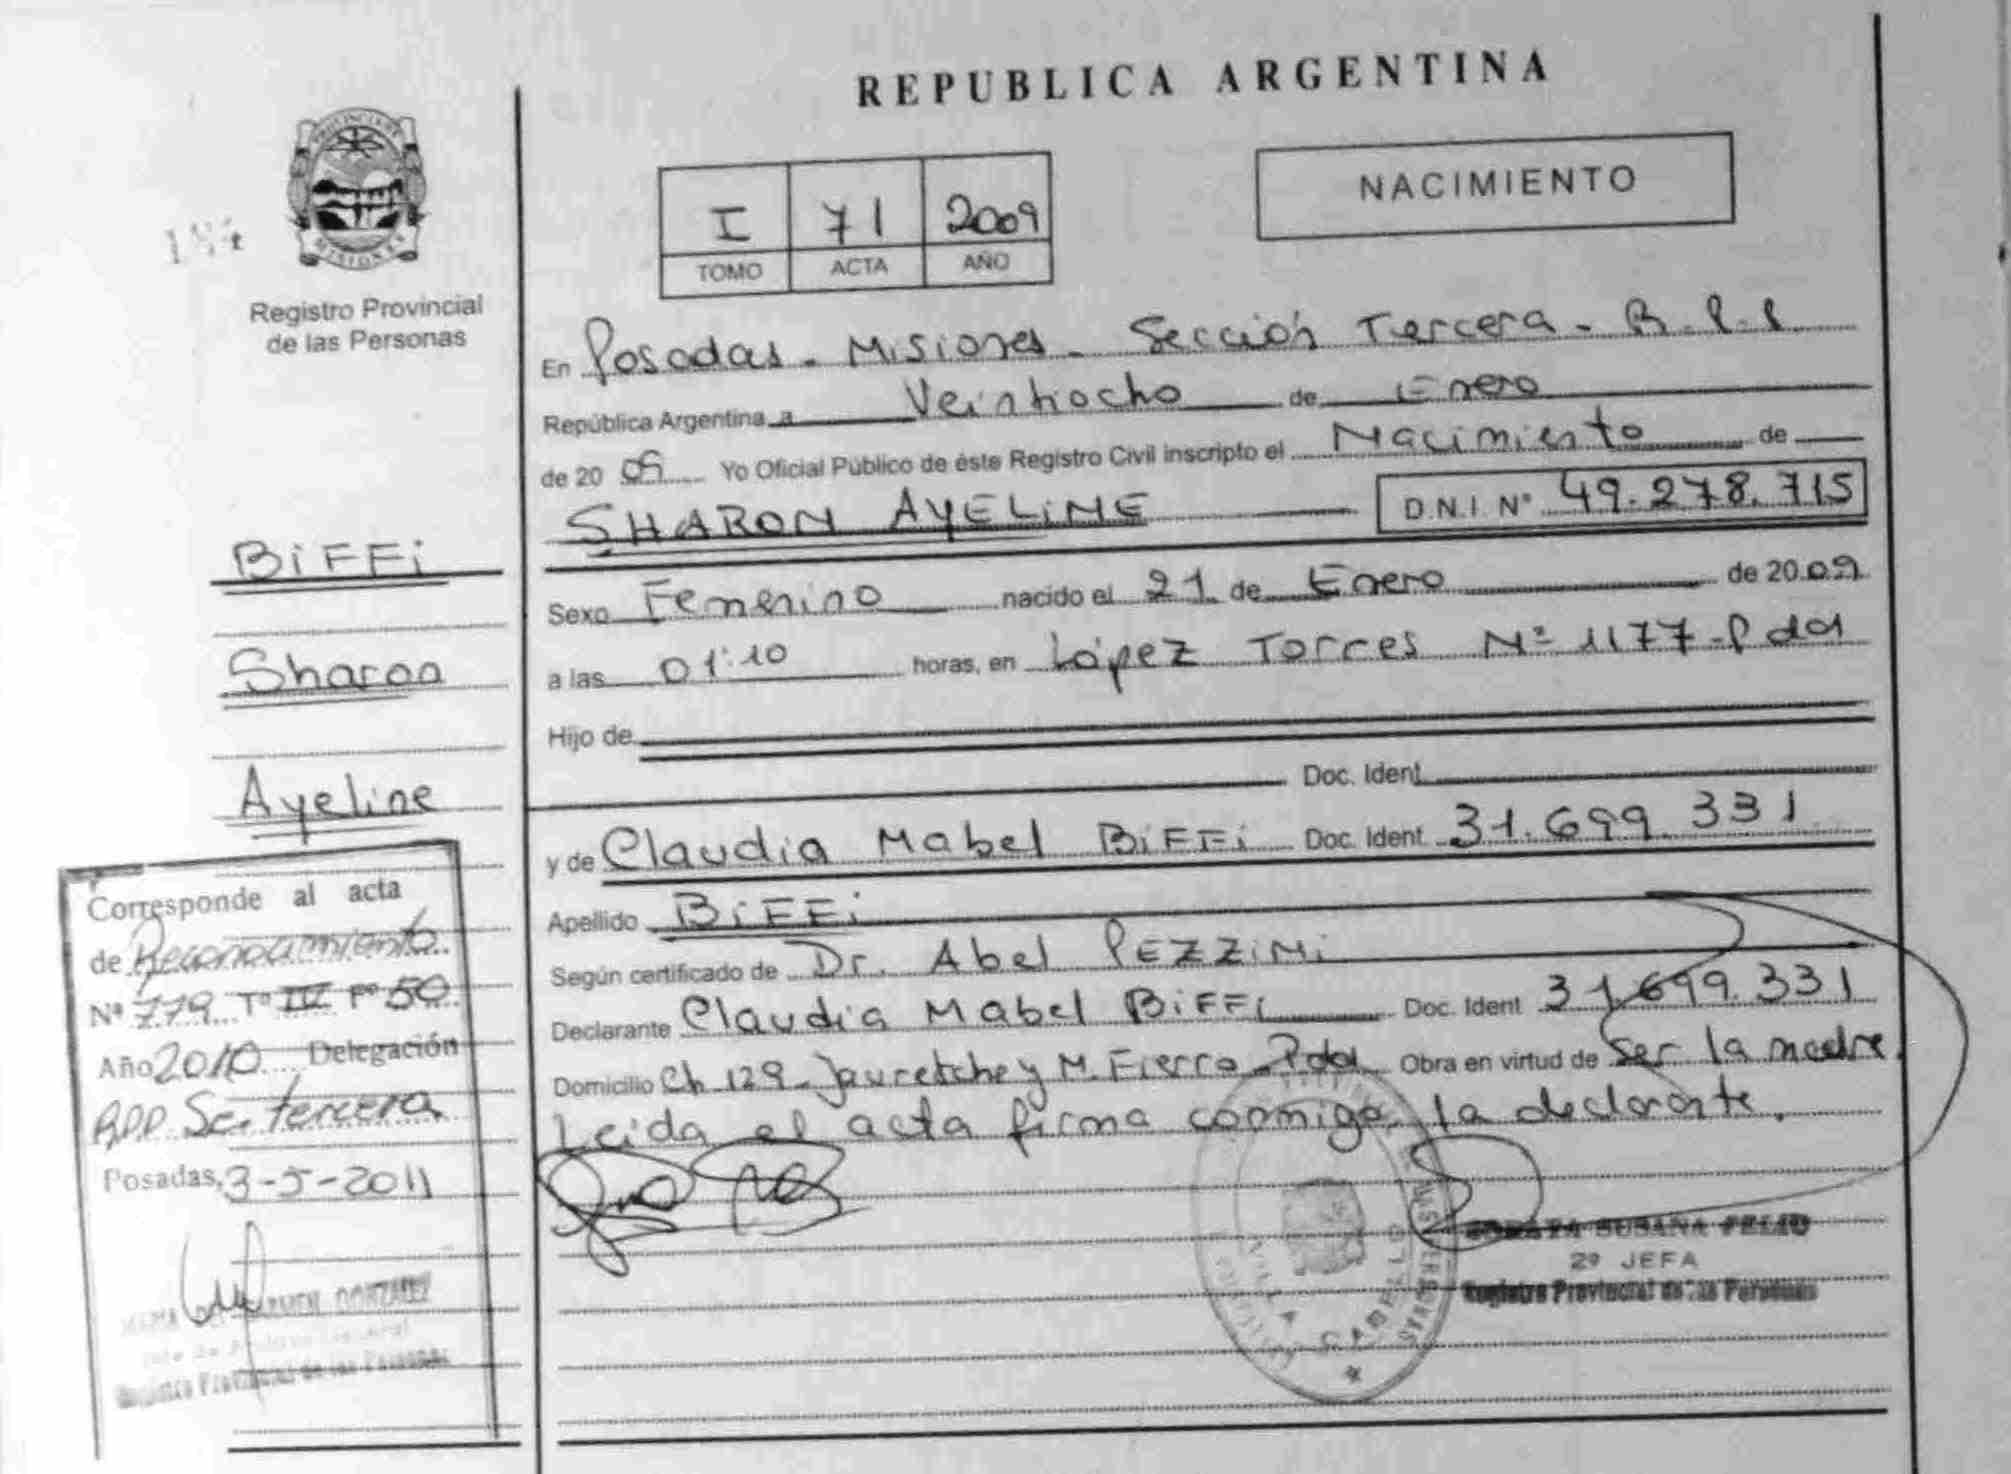 REPUBLICA ARGENTINA
NACIMIENTO
I 71 2009
TOMO ACTA AÑO
PROVINCIA DE MISIONES
Registro Provincial
de las Personas
En Posadas - Misiones - Sección Tercera - R.P.P
República Argentina a Veintiocho de Enero
de 20 09 Yo Oficial Público de éste Registro Civil inscripto el Nacimiento de
SHARON AYELINE D.N.I. Nº 49.278.715
Sexo Femenino nacido el 21 de Enero de 20 09
a las 01:10 horas, en López Torres Nº 1177 - Pdas
Hijo de
Doc. Ident
y de Claudia Mabel BiFFi Doc. Ident 31.699.331
Apellido BiFFi
Según certificado de Dr. Abel PEZZINI
Declarante Claudia Mabel BiFFi Doc. Ident 31.699.331
Domicilio Ch 129 - Jauretche y M. Fierro - Pdas Obra en virtud de Ser la madre
Leida el acta firma conmigo la declarante.
SUSANA
2º JEFA
Registro Provincial de las Personas
VILLA CABELLO
BiFFi
Sharon
Ayeline
Corresponde al acta
de Reconocimiento
Nº 779 Tº IV Fº 50
Año 2010 Delegación
RPP Sc. tercera
Posadas, 3-5-2011
MARIA DEL CARMEN GONZALEZ
Registro Provincial de las Personas